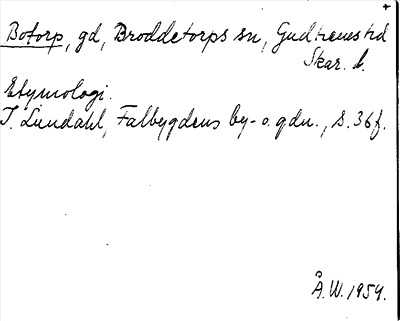 Botorp, gd, Broddetorps sn, Gudhems hd
Skar. l.
Etymologi.
I. Lundahl, Falbygdens by- o. gdn., s. 36 f.
Å. W. 1959.